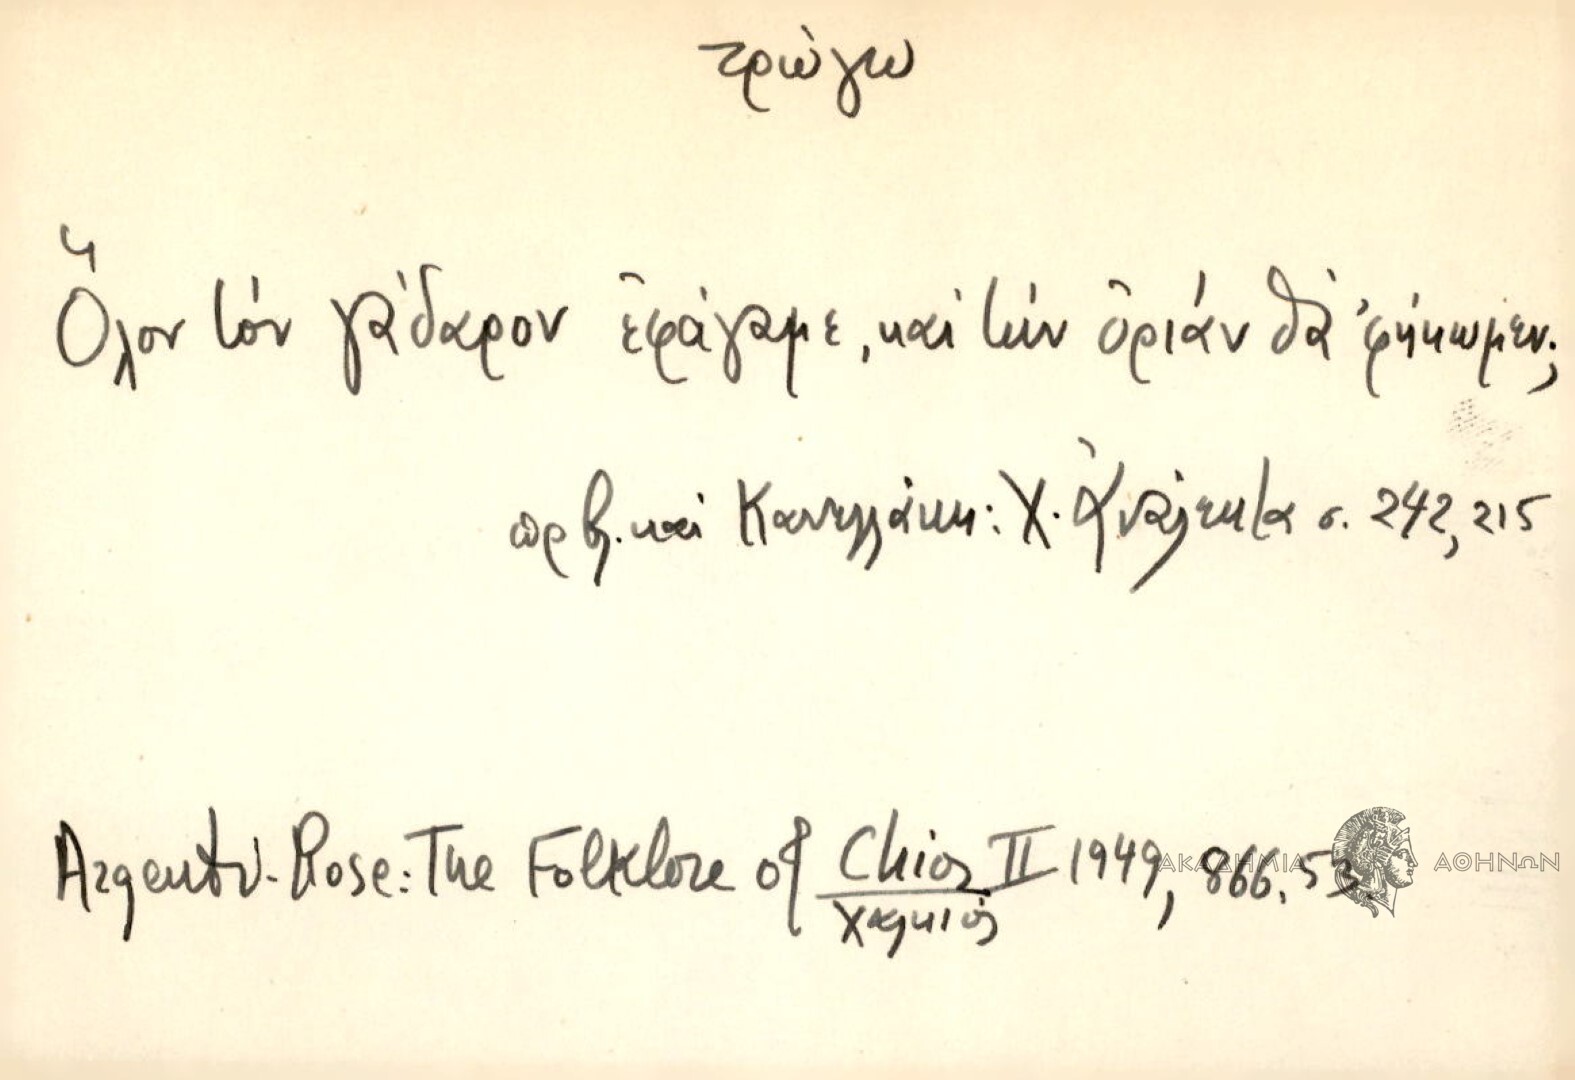 τρώγω
Ὅλον τόν γάδαρον ἐφάγαμε, καί τήν ὀριάν θά 'φήκωμεν;
πρβλ. καί Κανελλάκη: Χ. Ἀνάλεκτα σ. 242, 215
Argenti - Rose: The Folklore of Chios II 1949, 866, 53.
Χαλκιός
ΑΚΑΔΗΜΙΑ ΑΘΗΝΩΝ